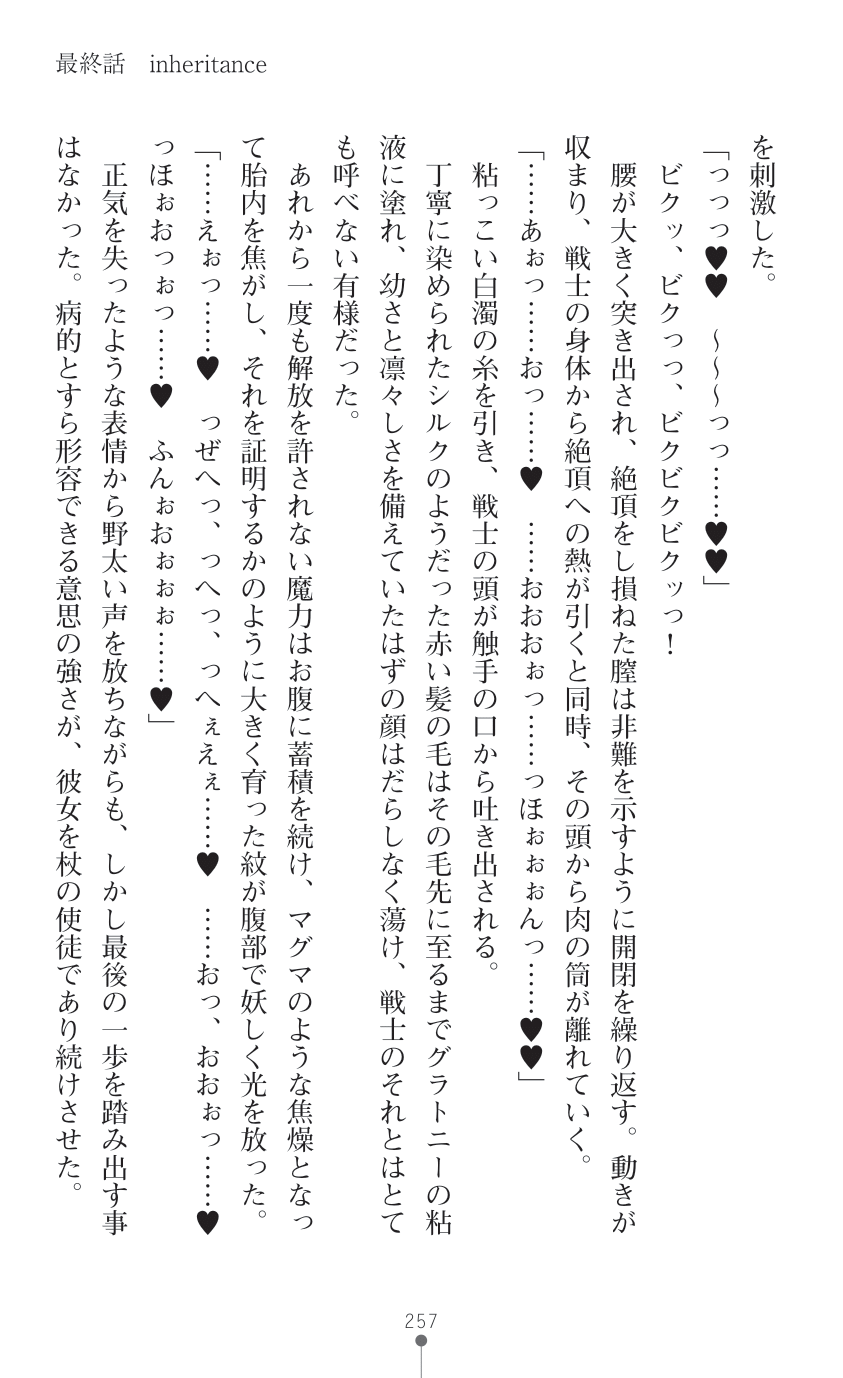 最終話　inheritance
を刺激した。
「っっっ♥♥　～～～っっ……♥♥」
　ビクッ、ビクっっ、ビクビクビクッっ！
　腰が大きく突き出され、絶頂をし損ねた膣は非難を示すように開閉を繰り返す。動きが
収まり、戦士の身体から絶頂への熱が引くと同時、その頭から肉の筒が離れていく。
「……あぉっ……おっ……♥　……おおおぉっ……っほぉぉぉんっ……♥♥」
　粘っこい白濁の糸を引き、戦士の頭が触手の口から吐き出される。
　丁寧に染められたシルクのようだった赤い髪の毛はその毛先に至るまでグラトニーの粘
液に塗れ、幼さと凛々しさを備えていたはずの顔はだらしなく蕩け、戦士のそれとはとて
も呼べない有様だった。
　あれから一度も解放を許されない魔力はお腹に蓄積を続け、マグマのような焦燥となっ
て胎内を焦がし、それを証明するかのように大きく育った紋が腹部で妖しく光を放った。
「……えぉっ……♥　っぜへっ、っへっ、っへぇえぇ……♥　……おっ、おおぉっ……♥
っほぉおっぉっ……♥　ふんぉおぉぉぉ……♥」
　正気を失ったような表情から野太い声を放ちながらも、しかし最後の一歩を踏み出す事
はなかった。病的とすら形容できる意思の強さが、彼女を杖の使徒であり続けさせた。
257